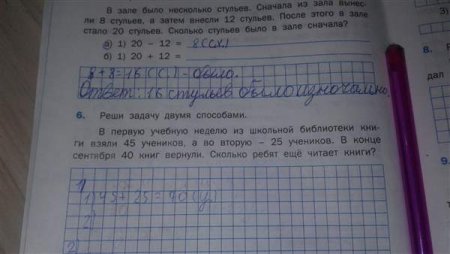 В зале было несколько стульев. Сначала из зала вынес-
ли 8 стульев, а затем внесли 12 стульев. После этого в зале
стало 20 стульев. Сколько стульев было в зале сначала?
а) 1) 20 – 12 = 8(ст.)
б) 1) 20 + 12 =
8+8=16(с.)-было.
Ответ: 16 стульев было изначально.
6. Реши задачу двумя способами.
В первую учебную неделю из школьной библиотеки кни-
ги взяли 45 учеников, а во вторую – 25 учеников. В конце
сентября 40 книг вернули. Сколько ребят ещё читает книги?
1
1) 45+25=70(у)
2)
2)
8.
дал
9.